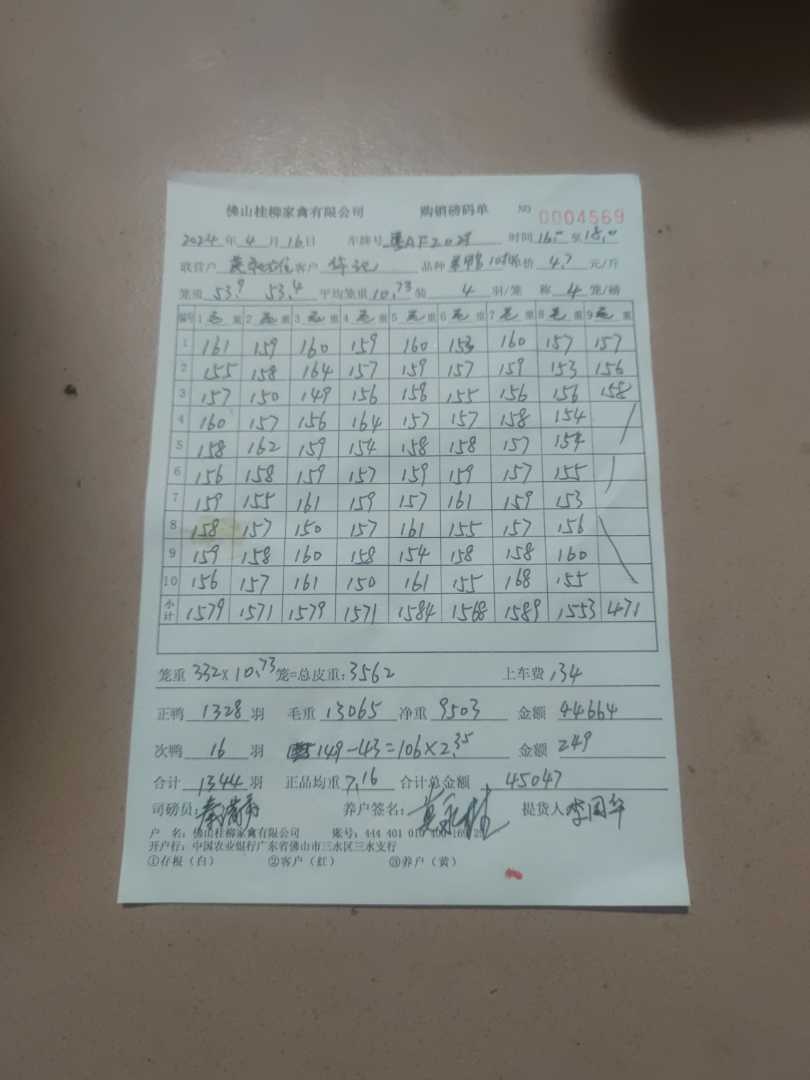 佛山桂柳家禽有限公司 购销磅码单 NO 0004569
2024年4月16日 车牌号 粤AF2029 时间16:00至18:00
收货户 客户 品种 价4.7元/斤
笼重53.9 53.4 平均笼重10.73 装4羽/笼 称4笼/磅
编号 1毛重 2毛重 3毛重 4毛重 5毛重 6毛重 7毛重 8毛重 9毛重
1 161 159 160 159 160 153 160 157 157
2 155 158 164 157 159 157 159 153 156
3 157 150 149 156 158 155 156 156 158
4 160 157 156 164 157 157 158 154
5 158 162 159 154 158 158 157 154
6 156 158 159 157 159 159 157 155
7 159 155 161 159 157 161 159 153
8 158 157 150 157 161 155 157 156
9 159 158 160 158 154 158 158 160
10 156 157 161 150 161 155 168 155
小计 1579 1571 1579 1571 1584 1568 1589 1553 471
笼重332×10.73笼=总皮重:3562 上车费134
正鸭1328羽 毛重13065 净重9503 金额44664
次鸭16羽 149-43=106×2.35 金额249
合计1344羽 正品均重7.16 合计总金额45047
司磅员: 养户签名: 提货人李国华
户 名:佛山桂柳家禽有限公司 账号:444 401 010 400 160
开户行:中国农业银行广东省佛山市三水区三水支行
①存根(白) ②客户(红) ③养户(黄)